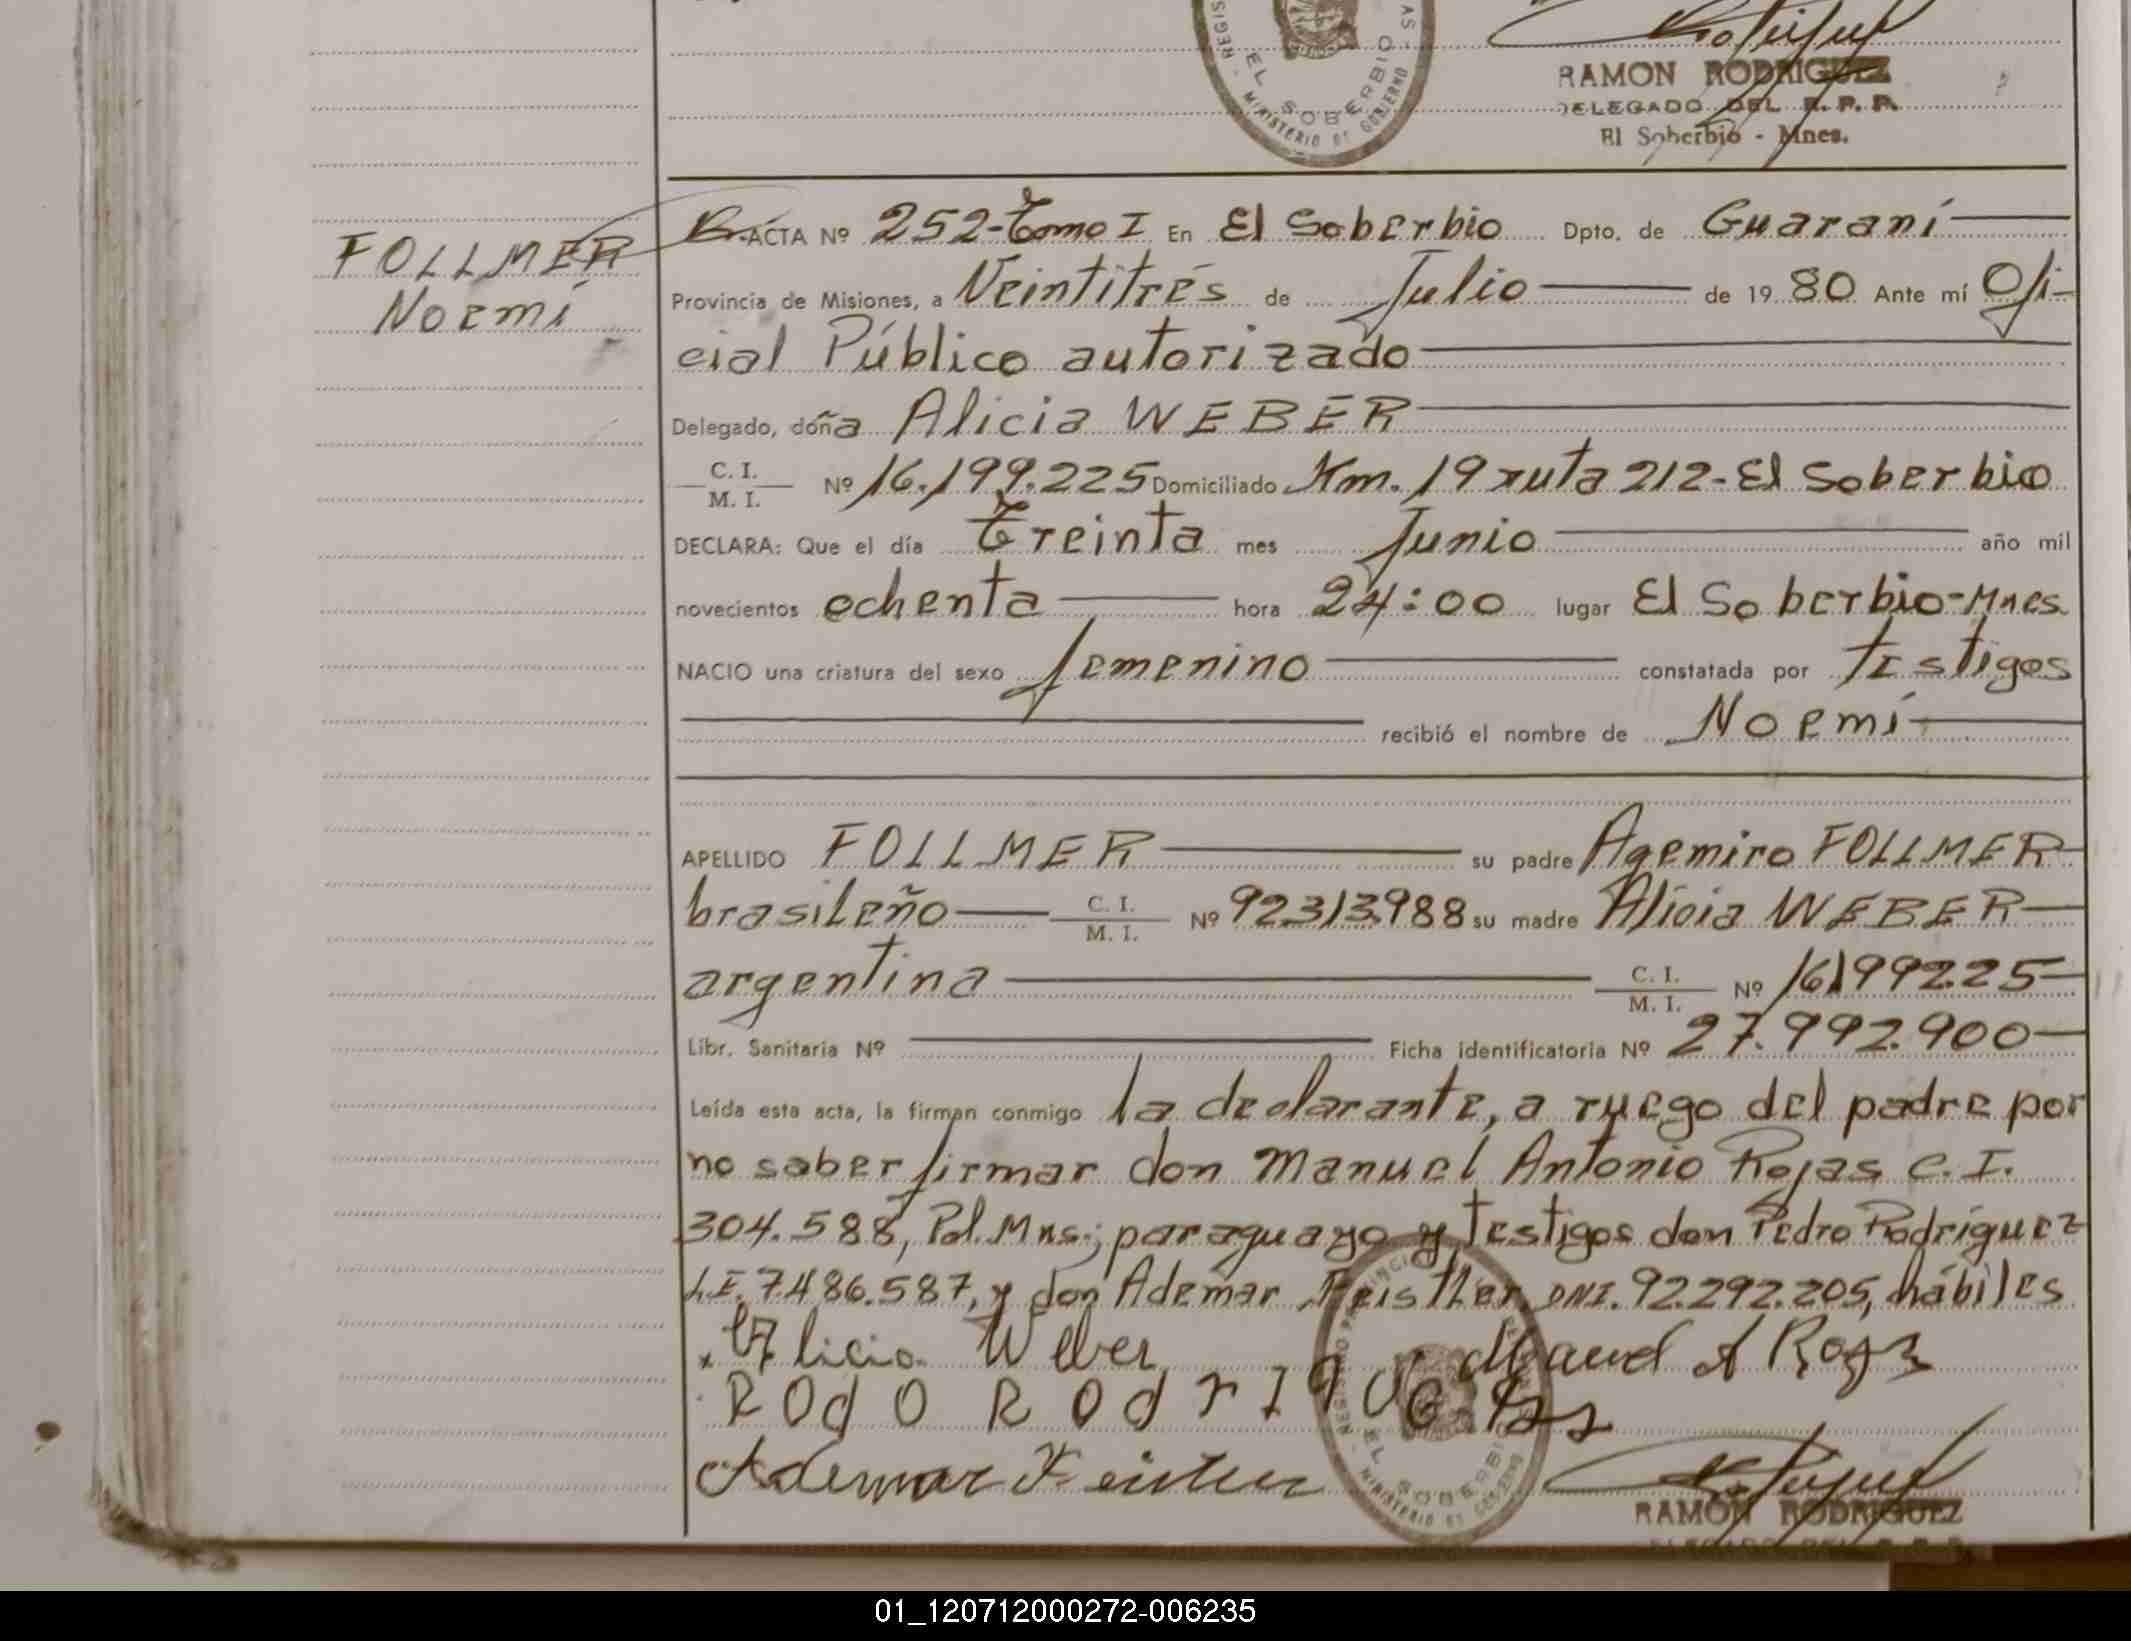 REGIS
EL SOBERBIO
MINISTERIO DE GOBIERNO
RAMON RODRIGUEZ
DELEGADO DEL R. P. P.
El Soberbio - Mnes.
FOLLMER
Noemí
ACTA Nº 252-Tomo I En El Soberbio Dpto. de Guaraní
Provincia de Misiones, a Veintitrés de Julio de 1980 Ante mí Ofi-
cial Público autorizado
Delegado, doña Alicia WEBER
C. I.
M. I. Nº 16.199.225 Domiciliado Km. 19 ruta 212-El Soberbio
DECLARA: Que el día Treinta mes Junio año mil
novecientos ochenta hora 24:00 lugar El Soberbio-Mnes.
NACIO una criatura del sexo femenino constatada por testigos
recibió el nombre de Noemí
APELLIDO FOLLMER su padre Agemiro FOLLMER
brasileño C. I. M. I. Nº 92313988 su madre Alicia WEBER
argentina C. I. M. I. Nº 16199225
Libr. Sanitaria Nº Ficha identificatoria Nº 27.992.900
Leída esta acta, la firman conmigo la declarante, a ruego del padre por
no saber firmar don Manuel Antonio Rojas C. I.
304.588, Pol. Mns.; paraguayo y testigos don Pedro Rodríguez
L.E. 7.486.587, y don Ademar DNI. 92.292.205, hábiles
Alicia Weber Manuel A Rojas
Ademar
EL SOBERBIO
MINISTERIO DE GOBIERNO
RAMON RODRIGUEZ
01_120712000272-006235